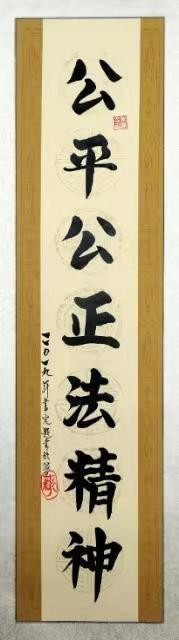 公平公正法精神
二〇一九年